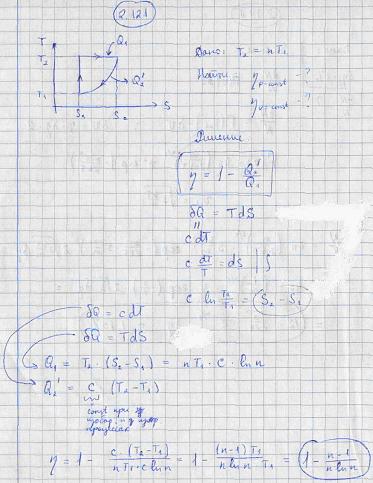 2.121
T
T₂
T₁
Q₁
Q₂'
S₁ S₂ S
Дано: T₂ = nT₁
Найти: η p-const - ?
η v-const - ?
Решение
η = 1 - Q₂'/Q₁
δQ = TdS
"
cdT
c dT/T = dS | ∫
c ln T₂/T₁ = S₂ - S₁
δQ = cdT
δQ = TdS
Q₁ = T₂ · (S₂ - S₁) = nT₁ · c · ln n
Q₂' = c (T₂ - T₁)
const при
процессах
η = 1 - c · (T₂ - T₁)/nT₁ · c ln n = 1 - (n-1) T₁/n ln n T₁ = 1 - n-1/n ln n